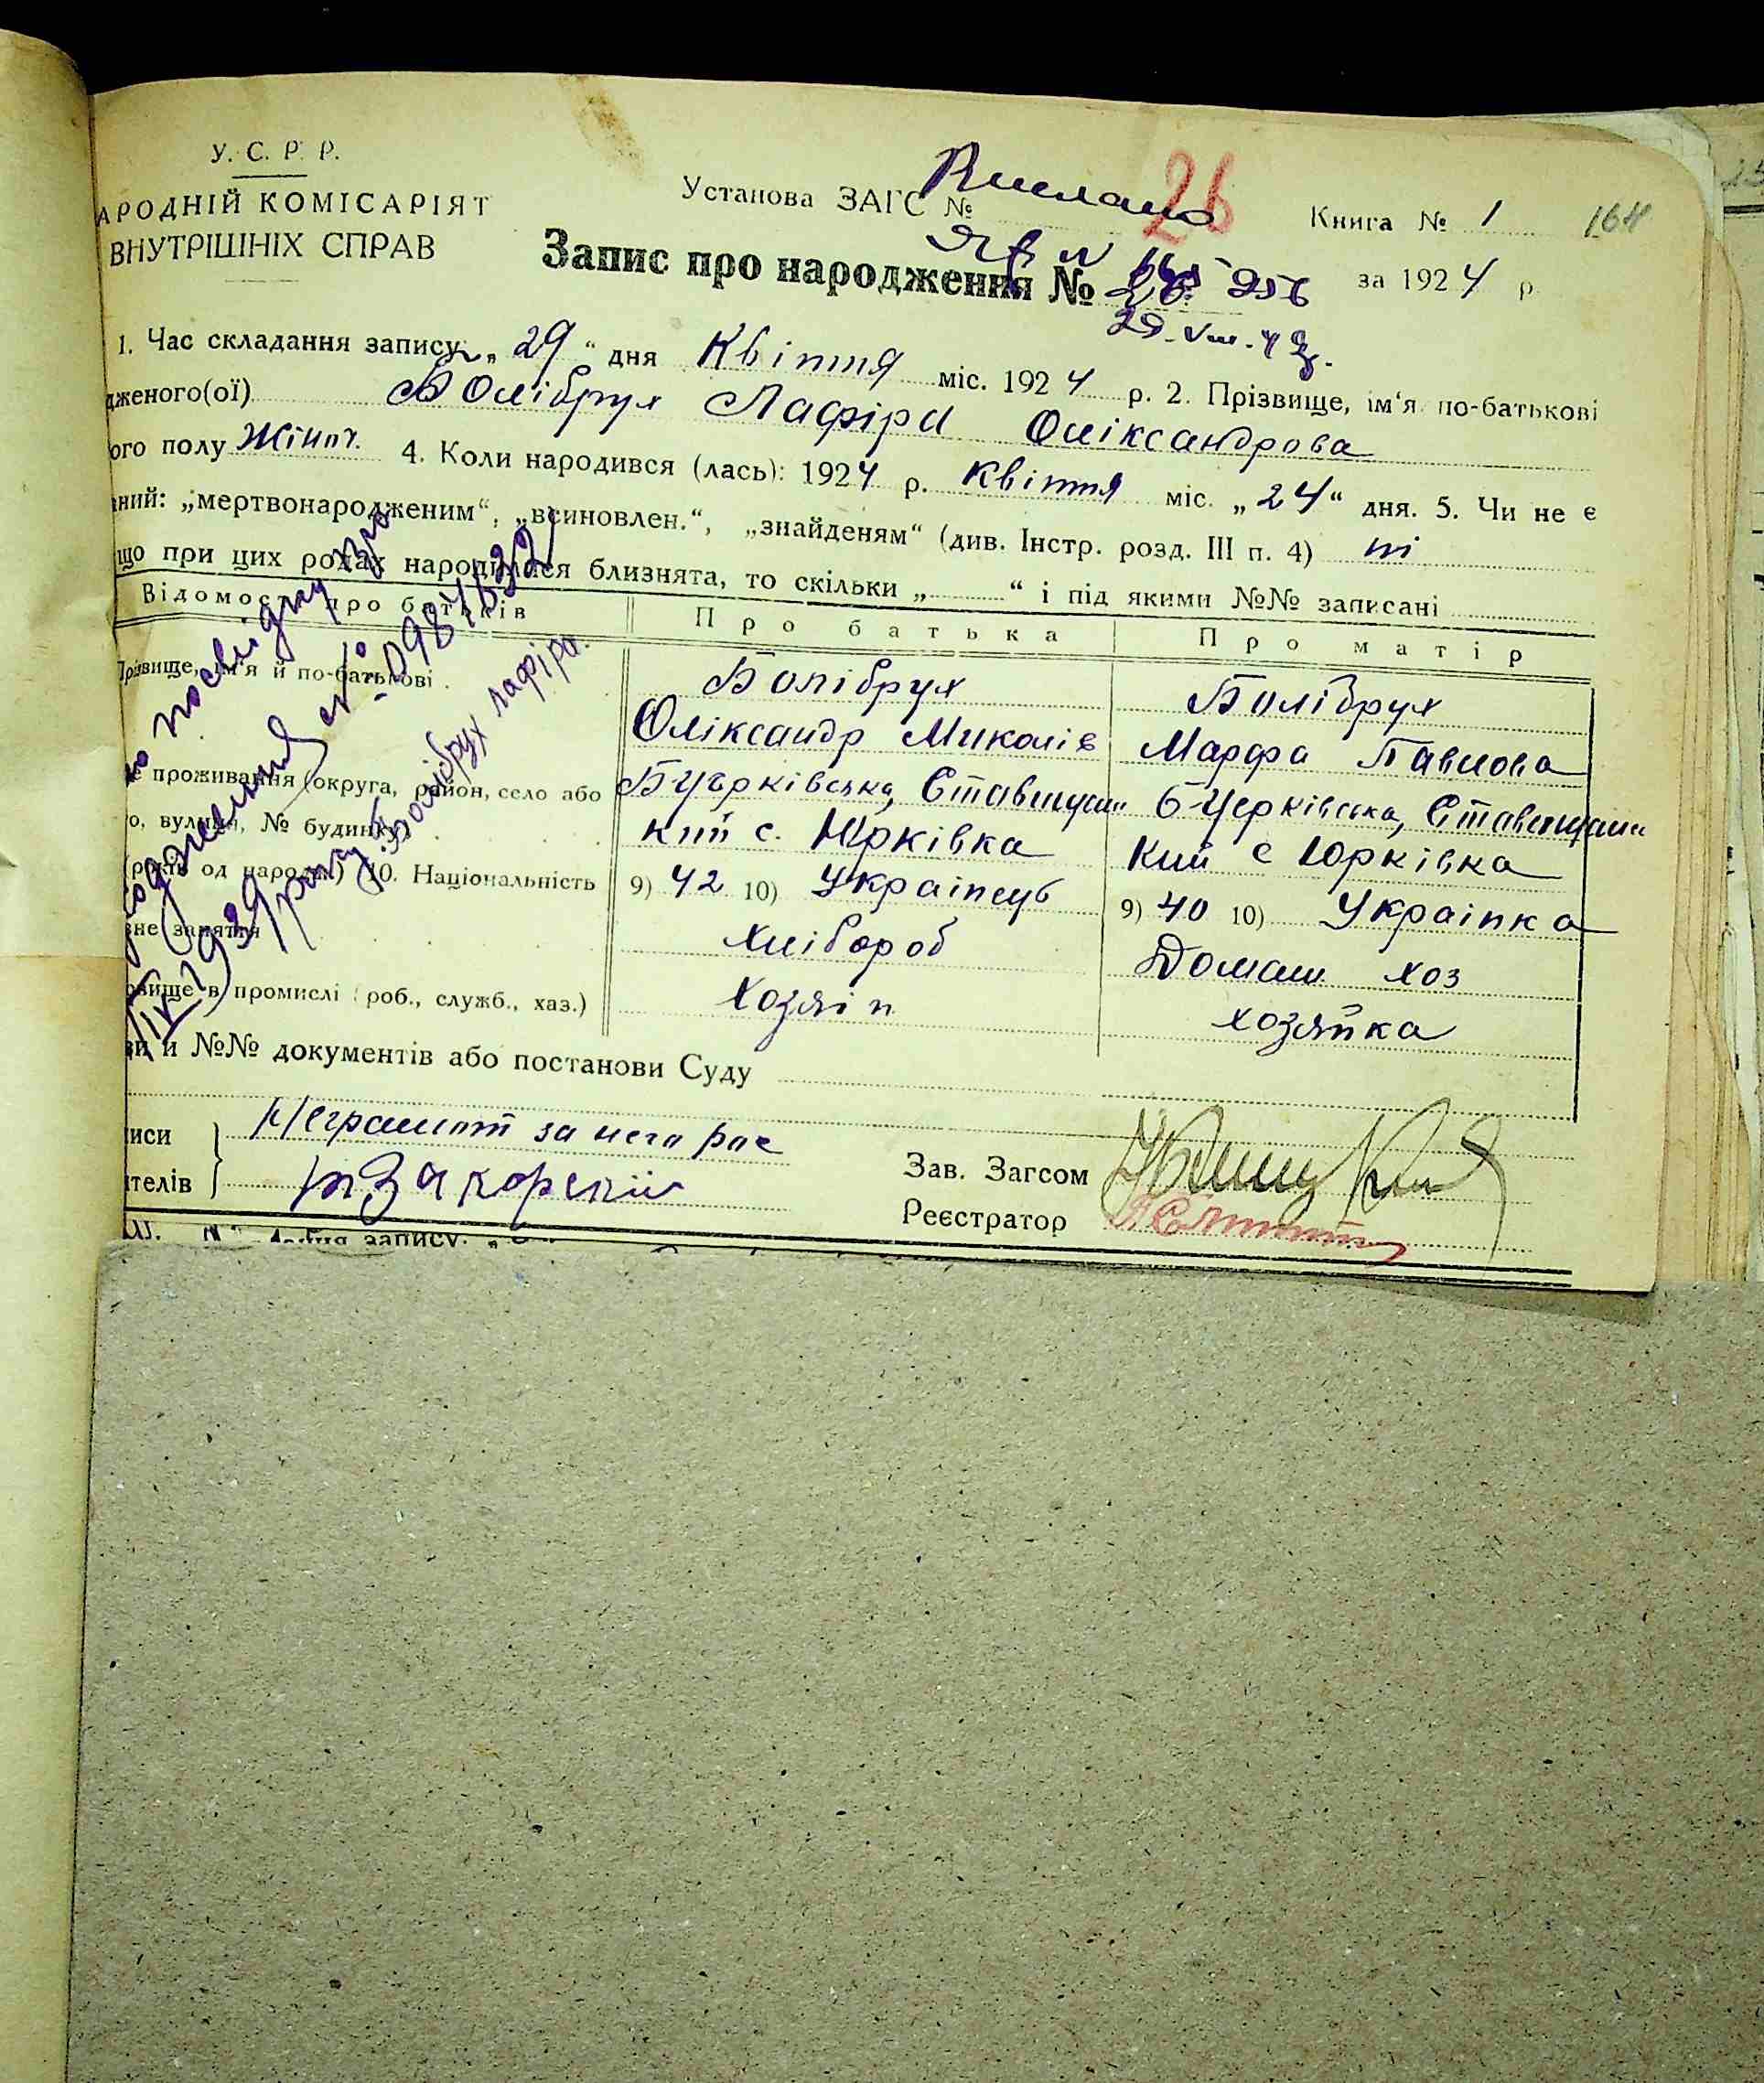 У. С. Р. Р.
АРОДНІЙ КОМІСАРІЯТ
ВНУТРІШНІХ СПРАВ
Установа ЗАГС № Вислано 26 Книга № 1 164
Запис про народження № 26 за 1924 р.
29. VIII. 42.
1. Час складання запису: „29“ дня Квітня міс. 1924 р. 2. Прізвище, ім‘я по-батькові
дженого(ої) Болібрух Лафіра Оліксандрова
ого полу Жіноч. 4. Коли народився (лась): 1924 р. Квітня міс. „24“ дня. 5. Чи не є
ний: „мертвонародженим“, „всиновлен.“, „знайденям“ (див. Інстр. розд. III п. 4) ні
що при цих родах народилися близнята, то скільки „ “ і під якими №№ записані
Відомості про батьків Про батька Про матір
Прізвище, ім‘я й по-батькові Болібрух Болібрух
Оліксандр Миколів Марфа Павлова
е проживання (округа, район, село або Б Церківська, Ставищан Б-Церківська, Ставищан
о, вулиця, № будинку) кий с. Юрківка кий с Юрківка
(років од народж.) 10. Національність 9) 42 10) Українець 9) 40 10) Українка
вне заняття хлібороб Домаш хоз
овище в промислі (роб., служб., хаз.) хозяїн хозяйка
ви и №№ документів або постанови Суду
писи Неграмот за него рос
ителів Закорскій
Зав. Загсом
Реєстратор
но посвідку про
народження № 0987632
IX 1939 року Болібрух Лафіра.